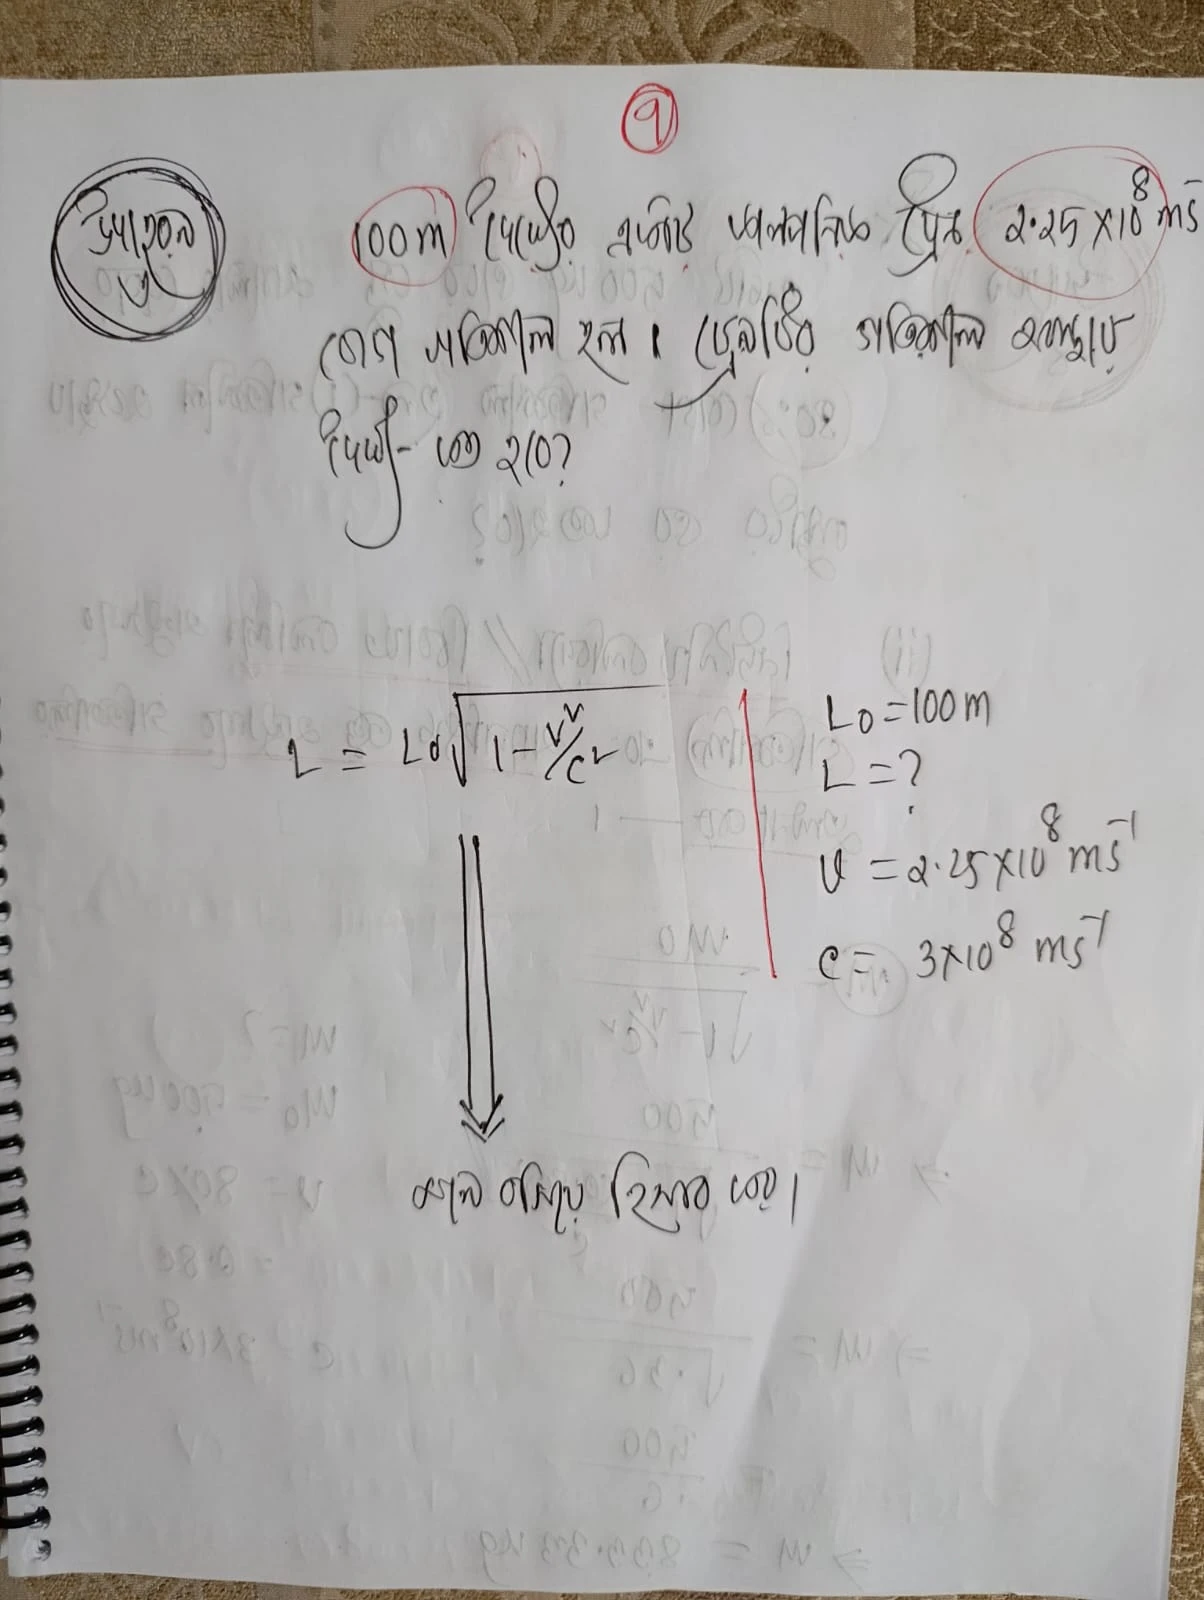 ৭
উদাহরন
৩
100m দৈর্ঘ্যের একটি কাল্পনিক ট্রেন 2.25×10⁸ ms⁻
বেগে গতিশীল হল। ট্রেনটির গতিশীল অবস্থায়
দৈর্ঘ্য- কত হবে?
L = L0√1-v²/c²
L0=100m
L=?
v=2.25×10⁸ ms⁻¹
c= 3×10⁸ ms⁻¹
মান বসিয়ে হিসাব কর।